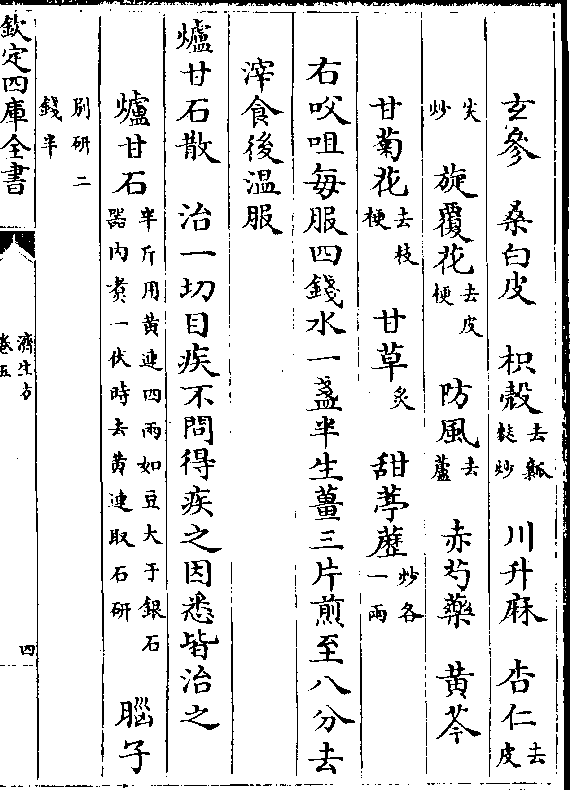 玄參 桑白皮 枳殼去瓤麩炒 川升麻 杏仁去皮
尖炒 旋覆花去皮梗 防風去蘆 赤芍藥 黄芩
甘菊花去枝梗 甘草炙 甜葶藶炒各一兩
右㕮咀每服四錢水一盞半生薑三片煎至八分去
滓食後温服
爐甘石散 治一切目疾不問得疾之因悉皆治之
爐甘石半斤用黄連四兩如豆大于銀石器内煑一伏時去黄連取石研 腦子
別研二錢半
欽定四庫全書
濟生方
卷五
四